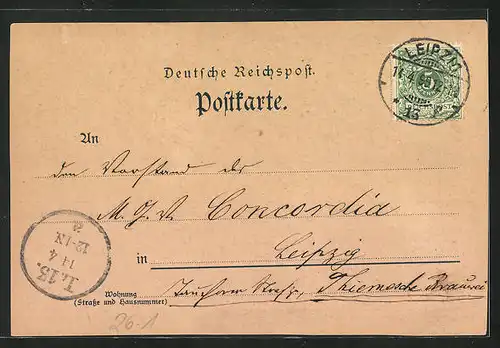 LEIPZIG
14.4.
13
5
Deutsche Reichspost.
Postkarte.
An
den Vorstand des
M. G. V. Concordia
in Leipzig
Wohnung
(Straße und Hausnummer)
Tauchaer Straße, Thiemesche Brauerei
L.13.
14 4
12-1N
26-1